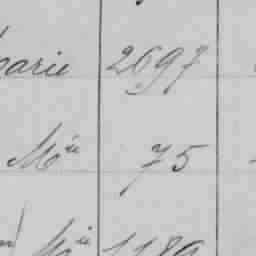 parie 2697
Mie 75
Mie 1189